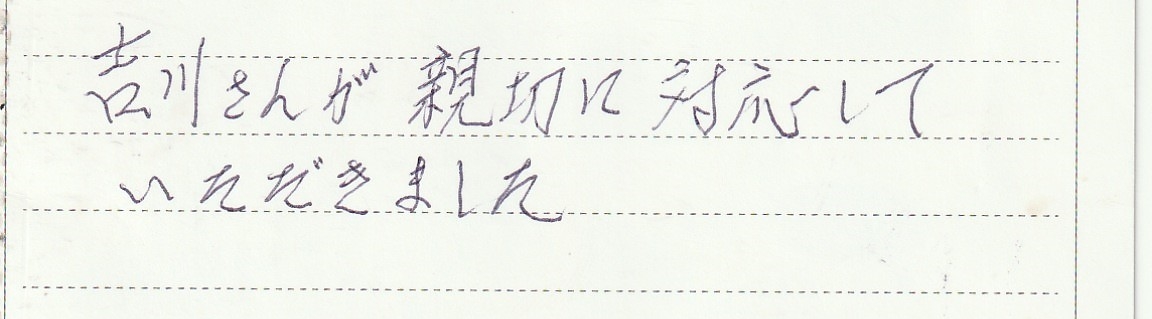 吉川さんが親切に対応して
いただきました